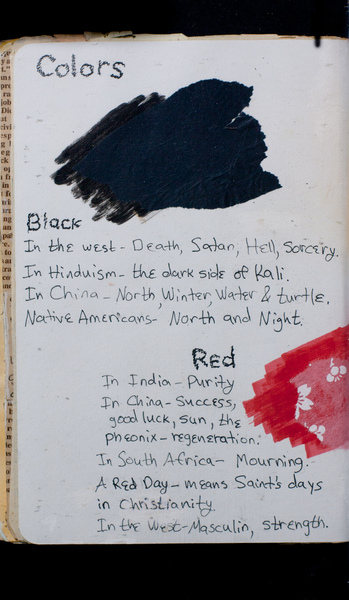 Colors
Black
In the west- Death, Satan, Hell, Sorcery.
In Hinduism- the dark side of Kali.
In China- North, Winter, Water & turtle.
Native Americans- North and Night.
Red
In India- Purity
In China- Success,
good luck, sun, the
pheonix- regeneration.
In South Africa- Mourning.
A Red Day- means Saint's days
in Christianity.
In the West-Masculin, strength.